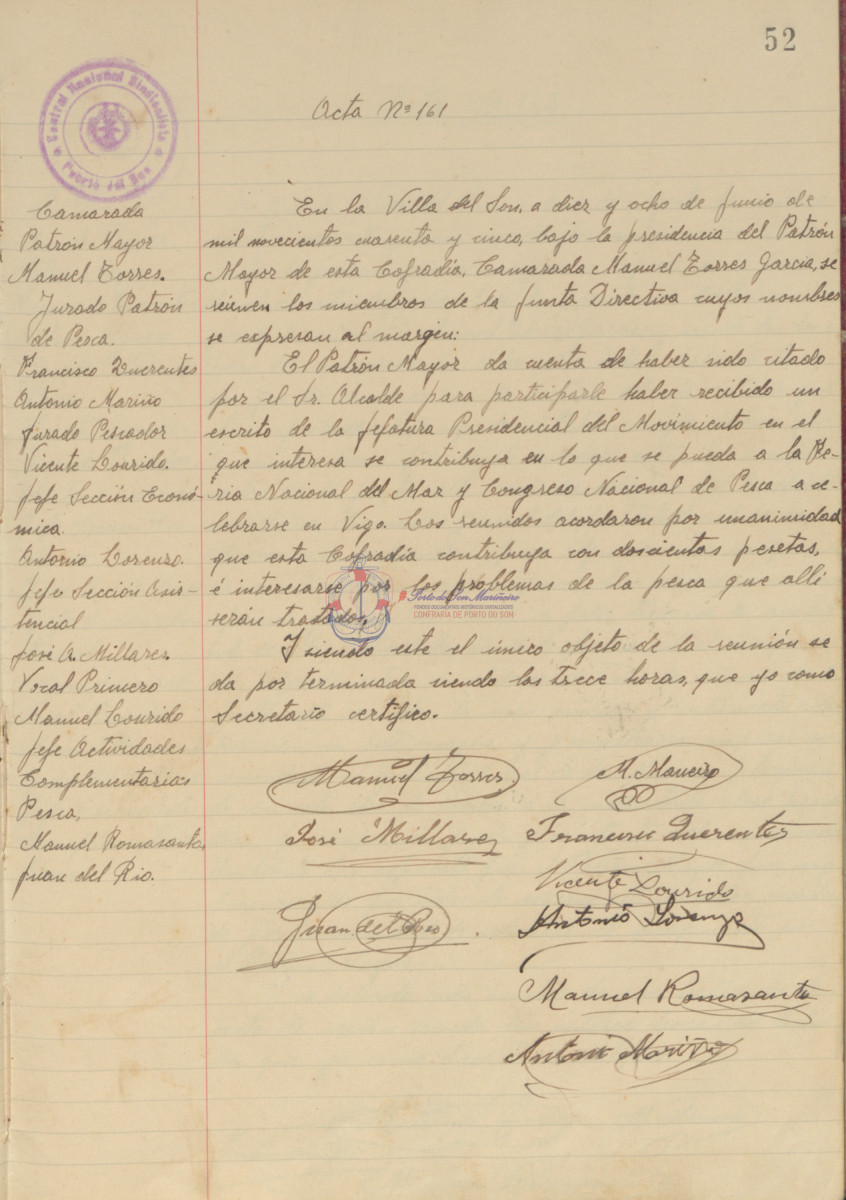 52
Central Nacional Sindicalista
Puerto del Son
Acta Nº 161
Camarada
Patrón Mayor
Manuel Torres.
Jurado Patrón
de Pesca.
Francisco Querentes
Antonio Mariño
Jurado Pescador
Vicente Lourido.
Jefe Sección Econó-
mica.
Antonio Lorenzo.
Jefe Sección Asis-
tencial
José A. Millares.
Vocal Primero
Manuel Lourido
Jefe Actividades
Complementarias
Pesca,
Manuel Romasanta,
Juan del Rio.
En la Villa del Son, a diez y ocho de Junio de
mil novecientos cuarenta y cinco, bajo la presidencia del Patrón
Mayor de esta Cofradía, Camarada Manuel Torres Garcia, se
reunen los miembros de la Junta Directiva cuyos nombres
se expresan al margen:
El Patrón Mayor da cuenta de haber sido citado
por el Sr. Alcalde para participarle haber recibido un
escrito de la Jefatura Presidencial del Movimiento en el
que interesa se contribuya en lo que se pueda a la Fe-
ria Nacional del Mar y Congreso Nacional de Pesca a ce-
lebrarse en Vigo. Los reunidos acordaron por unanimidad
que esta Cofradía contribuya con doscientas pesetas,
é interesarse por los problemas de la pesca que allí
serán tratados.
Y siendo este el único objeto de la reunión se
da por terminada siendo las trece horas, que yo como
Secretario certifico.
Porto do Son Mariñeiro
FONDOS DOCUMENTAIS HISTÓRICOS DIXITALIZADOS
CONFRARÍA DE PORTO DO SON
Manuel Torres
M. Maneiro
José Millares
Francisco Querentes
Vicente Lourido
Antonio Lorenzo
Juan del Rio
Manuel Romasanta
Antonio Mariño